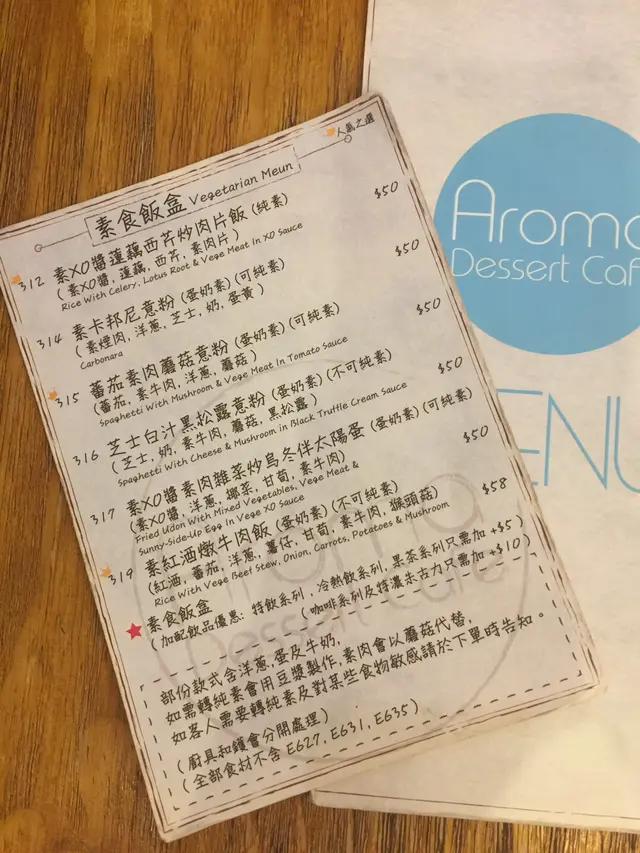 人氣之選
素食飯盒 Vegetarian Meun
312 素XO醬蓮藕西芹炒肉片飯 (純素) $50
( 素XO醬, 蓮藕, 西芹, 素肉片 )
Rice With Celery, Lotus Root & Vege Meat In XO Sauce
314 素卡邦尼意粉 (蛋奶素) (可純素) $50
( 素煙肉, 洋蔥, 芝士, 奶, 蛋黃 )
Carbonara
315 蕃茄素肉蘑菇意粉 (蛋奶素) (可純素) $50
(蕃茄, 素牛肉, 洋蔥, 蘑菇 )
Spaghetti With Mushroom & Vege Meat In Tomato Sauce
316 芝士白汁黑松露意粉 (蛋奶素) (不可純素) $50
( 芝士, 奶, 素牛肉, 蘑菇, 黑松露 )
Spaghetti With Cheese & Mushroom in Black Truffle Cream Sauce
317 素XO醬素肉雜菜炒烏冬伴太陽蛋 (蛋奶素) (可純素) $50
(素XO醬, 洋蔥, 椰菜, 甘荀, 素牛肉)
Fried Udon With Mixed Vegetables, Vege Meat &
Sunny-Side-Up Egg In Vege XO Sauce
319 素紅酒燉牛肉飯 (蛋奶素) (不可純素) $58
(紅酒, 蕃茄, 洋蔥, 薯仔, 甘荀, 素牛肉, 猴頭菇)
Rice With Vege Beef Stew, Onion, Carrots, Potatoes & Mushroom
素食飯盒
( 加配飲品優惠: 特飲系列, 冷熱飲系列, 果茶系列只需加 +$5 )
( 咖啡系列及特濃朱古力只需加 +$10 )
部份款式含洋蔥,蛋及牛奶,
如需轉純素會用豆漿製作,素肉會以蘑菇代替,
如客人需要轉純素及對某些食物敏感請於下單時告知。
( 廚具和鑊會分開處理 )
( 全部食材不含 E627, E631, E635 )
Aroma
Dessert Café
Aroma
Dessert Caf
ENU